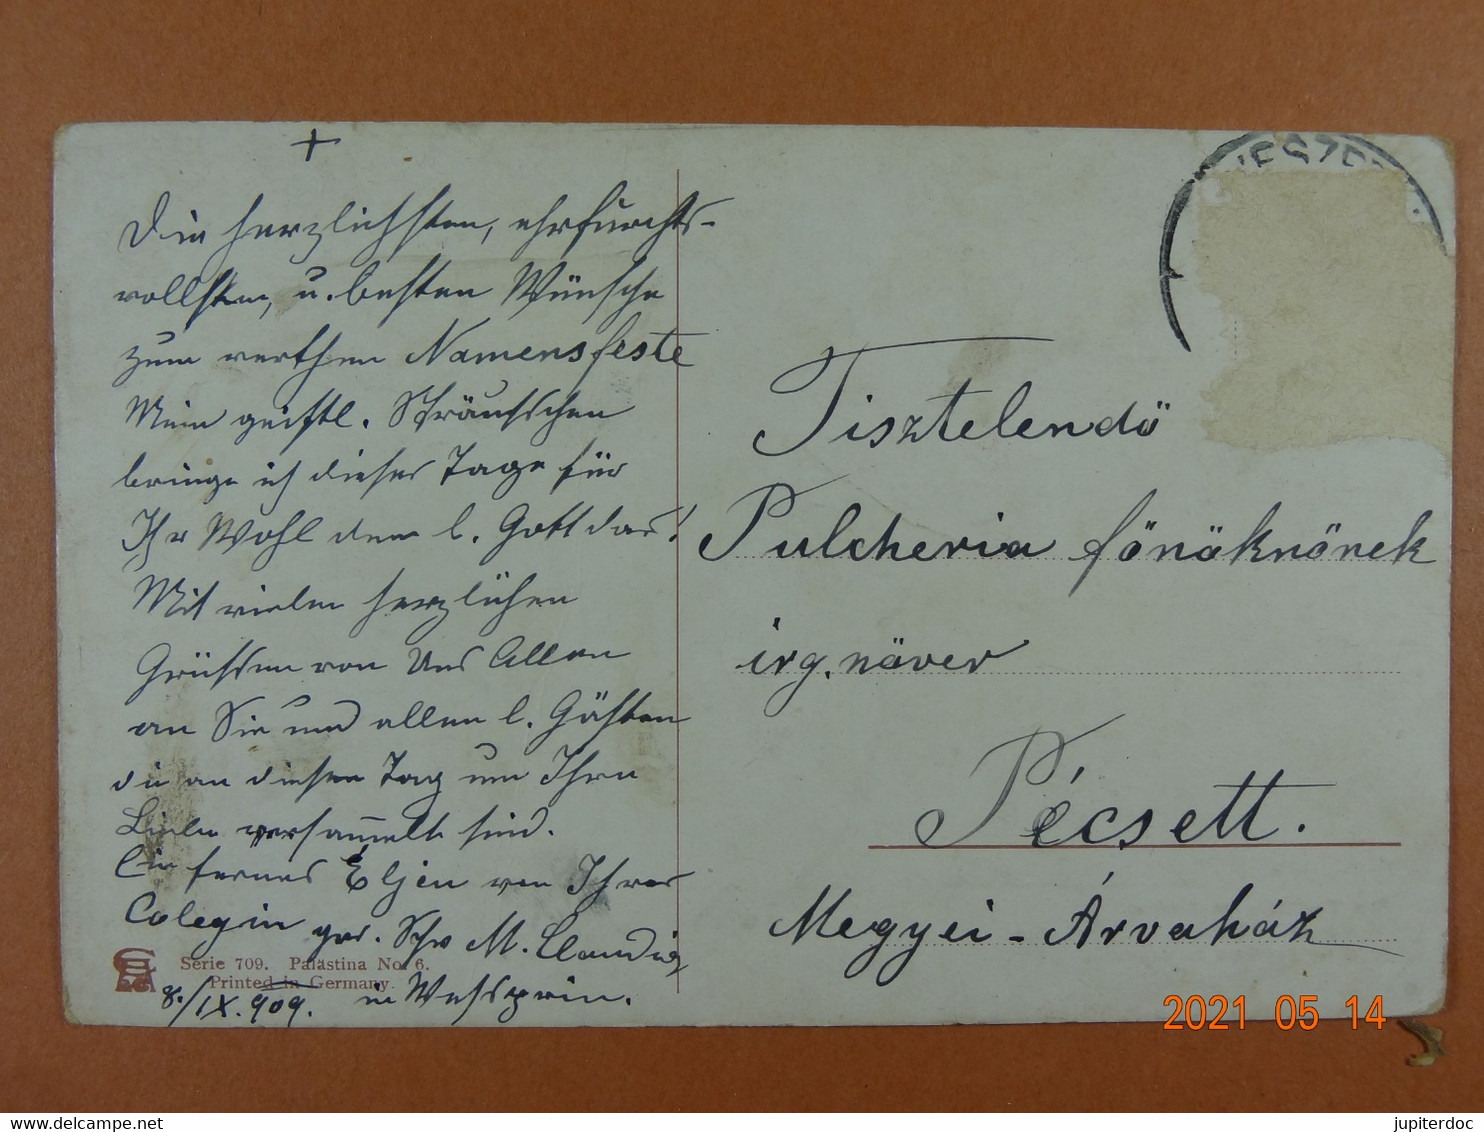 +
Die herzlichsten, ehrfurchts-
vollsten, u. besten Wünsche
zum werthen Namensfeste
Mein geistl. Sträußchen
bringe ich dieser Tage für
Ihr Wohl dem l. Gott dar!
Mit vielen herzlichen
Grüßen von Uns Allen
an Sie und allen l. Gästen
die an diesen Tag um Ihre
versammelt sind.
Ein fernes Éljen von Ihrer
Colegin gar. Schw M. Claudia
8./IX. 909. in Weßprim.
Serie 709. Palästina No. 6.
Printed in Germany.
Tisztelendö
Pulcheria fönöknönek
irg. növer
Pécsett.
Megyei-Árvaház
2021 05 14
jupiterdoc